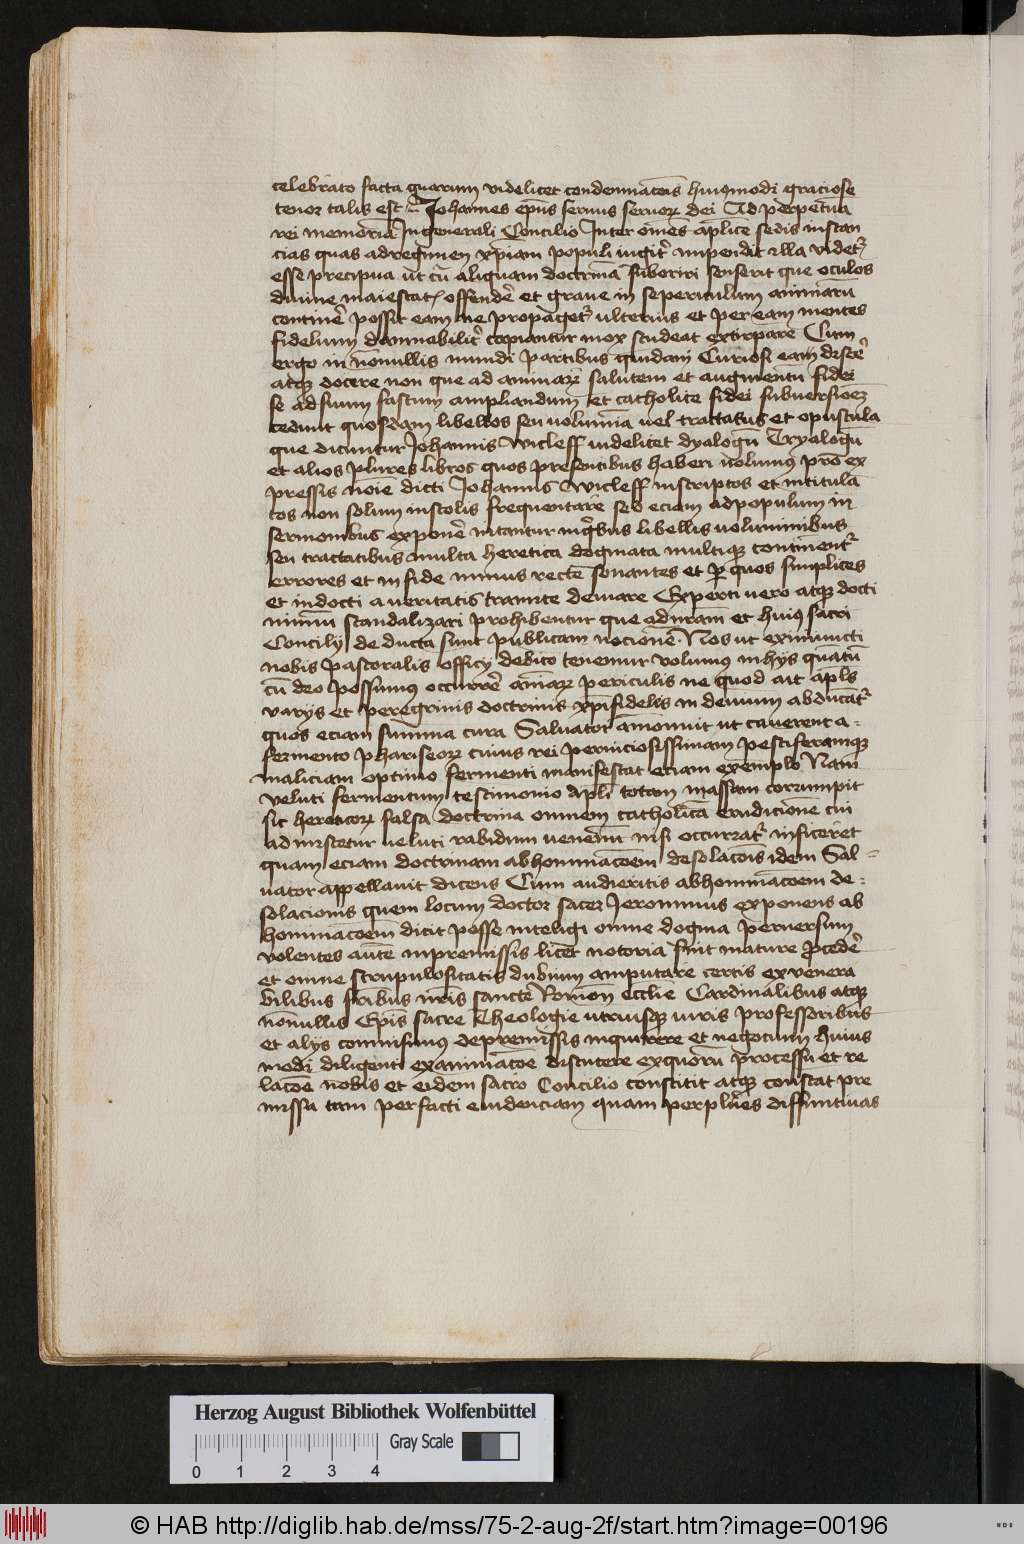 celebrato facta quarum videlicet condempnacōis huiꝰmodi graciose
tenor talis est Johannes ep̄us seruus seruoꝝ dei Ad perpetua
rei memoriā In generali Concilio Inter om̄es aplīce sedis instan
cias quas ad regimen xp̄iani populi iugit̾ impendit illa videt̾
esse precipua ut cū aliquam doctrinā suboriri senserit que oculos
diuine maiestat̾ offendē et graue in se periculum animarū
continē possit eam ne propaget̾ ulterius et per eam mentes
fidelium dampnabilit̾ capiantur mox studeat extirpare Cum
ergo in nōnullis mundi partibus quidam Curiosi eam discē
atqꝫ docere non que ad animaꝝ salutem et augmentū fidei
se ad suum fastum ampliandum et catholice fidei subuersiōeꝫ
cedunt quosdam libellos seu volumīa vel tractatus et opuscula
que dicuntur Johannis Wicleff videlicet dyalogū Tryalogū
et alios plures libros quos presentibus haberi volumꝰ prō ex
pressis nōīe dicti Johannis Wicleff inscriptos et intitula
tos non solum in scolis frequentare sed eciam ad populum in
sermonibus exponē nitantur in q̾bus libellis uoluminibus
seu tractatibus multa heretica dogmata multiqꝫ continent̾
errores et in fide minus recte sonantes et ꝑ quos simplices
et indocti a veritatis tramite deuiare Experti vero atqꝫ docti
nimiū scandalizari prohibentur que ad nrām et huiꝰ sacri
Concilij deducta sunt publicam nocionē. Nos ut eximiuncti
nobis pastoralis officij debito tenemur volumꝰ in hijs quātū
cū deo possumꝰ occurrē aīaꝝ periculis ne quod ait apl̄s
varijs et peregrinis doctrinis xp̄ifidelis in deuium abducat̾
quos eciam summa cura Saluator āmonuit ut cauerent a
fermento phariseoꝝ cuius rei perniciosissimam pestiferamqꝫ
maliciam optimo fermenti manifestat eciam exemplo Nam
veluti fermentum testimonio apl̄i totam massam corrumpit
sic hereticoꝝ falsa doctrina omnem catholicā erudicione cui
admiscetur ueluti rabidum venenū nisi occurrat̾ inficeret
quam eciam doctrinam abhominacōem desolacōis idem Sal=
uator appellauit dicens Cum audieritis abhominacōem de=
solacionis quem locum doctor sacer Jeronimus exponens ab
hominacōem dicit posse inteligi omne dogma peruersum
volentes autē in premissis licet notoria sint mature ꝓcedē
et omne scrupulositatis dubium amputare certis ex venera
bilibus fribus nrīs sancte Romēn ecclīe Cardinalibus atqꝫ
nonnullis Ep̄is sacre Theologie utriusqꝫ iuris professoribus
et alijs comisimus de premissis inquirere et negocium huius
modi diligenti examinacōe discutere ex quorū processu et re
lacōe nobis et eidem sacro Concilio constitit atqꝫ constat pre
missa tam per facti euidenciam quam per plūes diffinitiuas
Herzog August Bibliothek Wolfenbüttel
Gray Scale
0 1 2 3 4
© HAB http://diglib.hab.de/mss/75-2-aug-2f/start.htm?image=00196